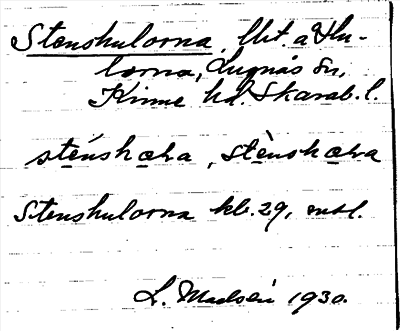 Stenshulorna, lht. a Hu-
lorna, Lugnås sn,
Kinne hd. Skarab. l.
sténshæra, stènshæra
Stenshulorna kb. 29, ensl.
L. Madsén 1930.